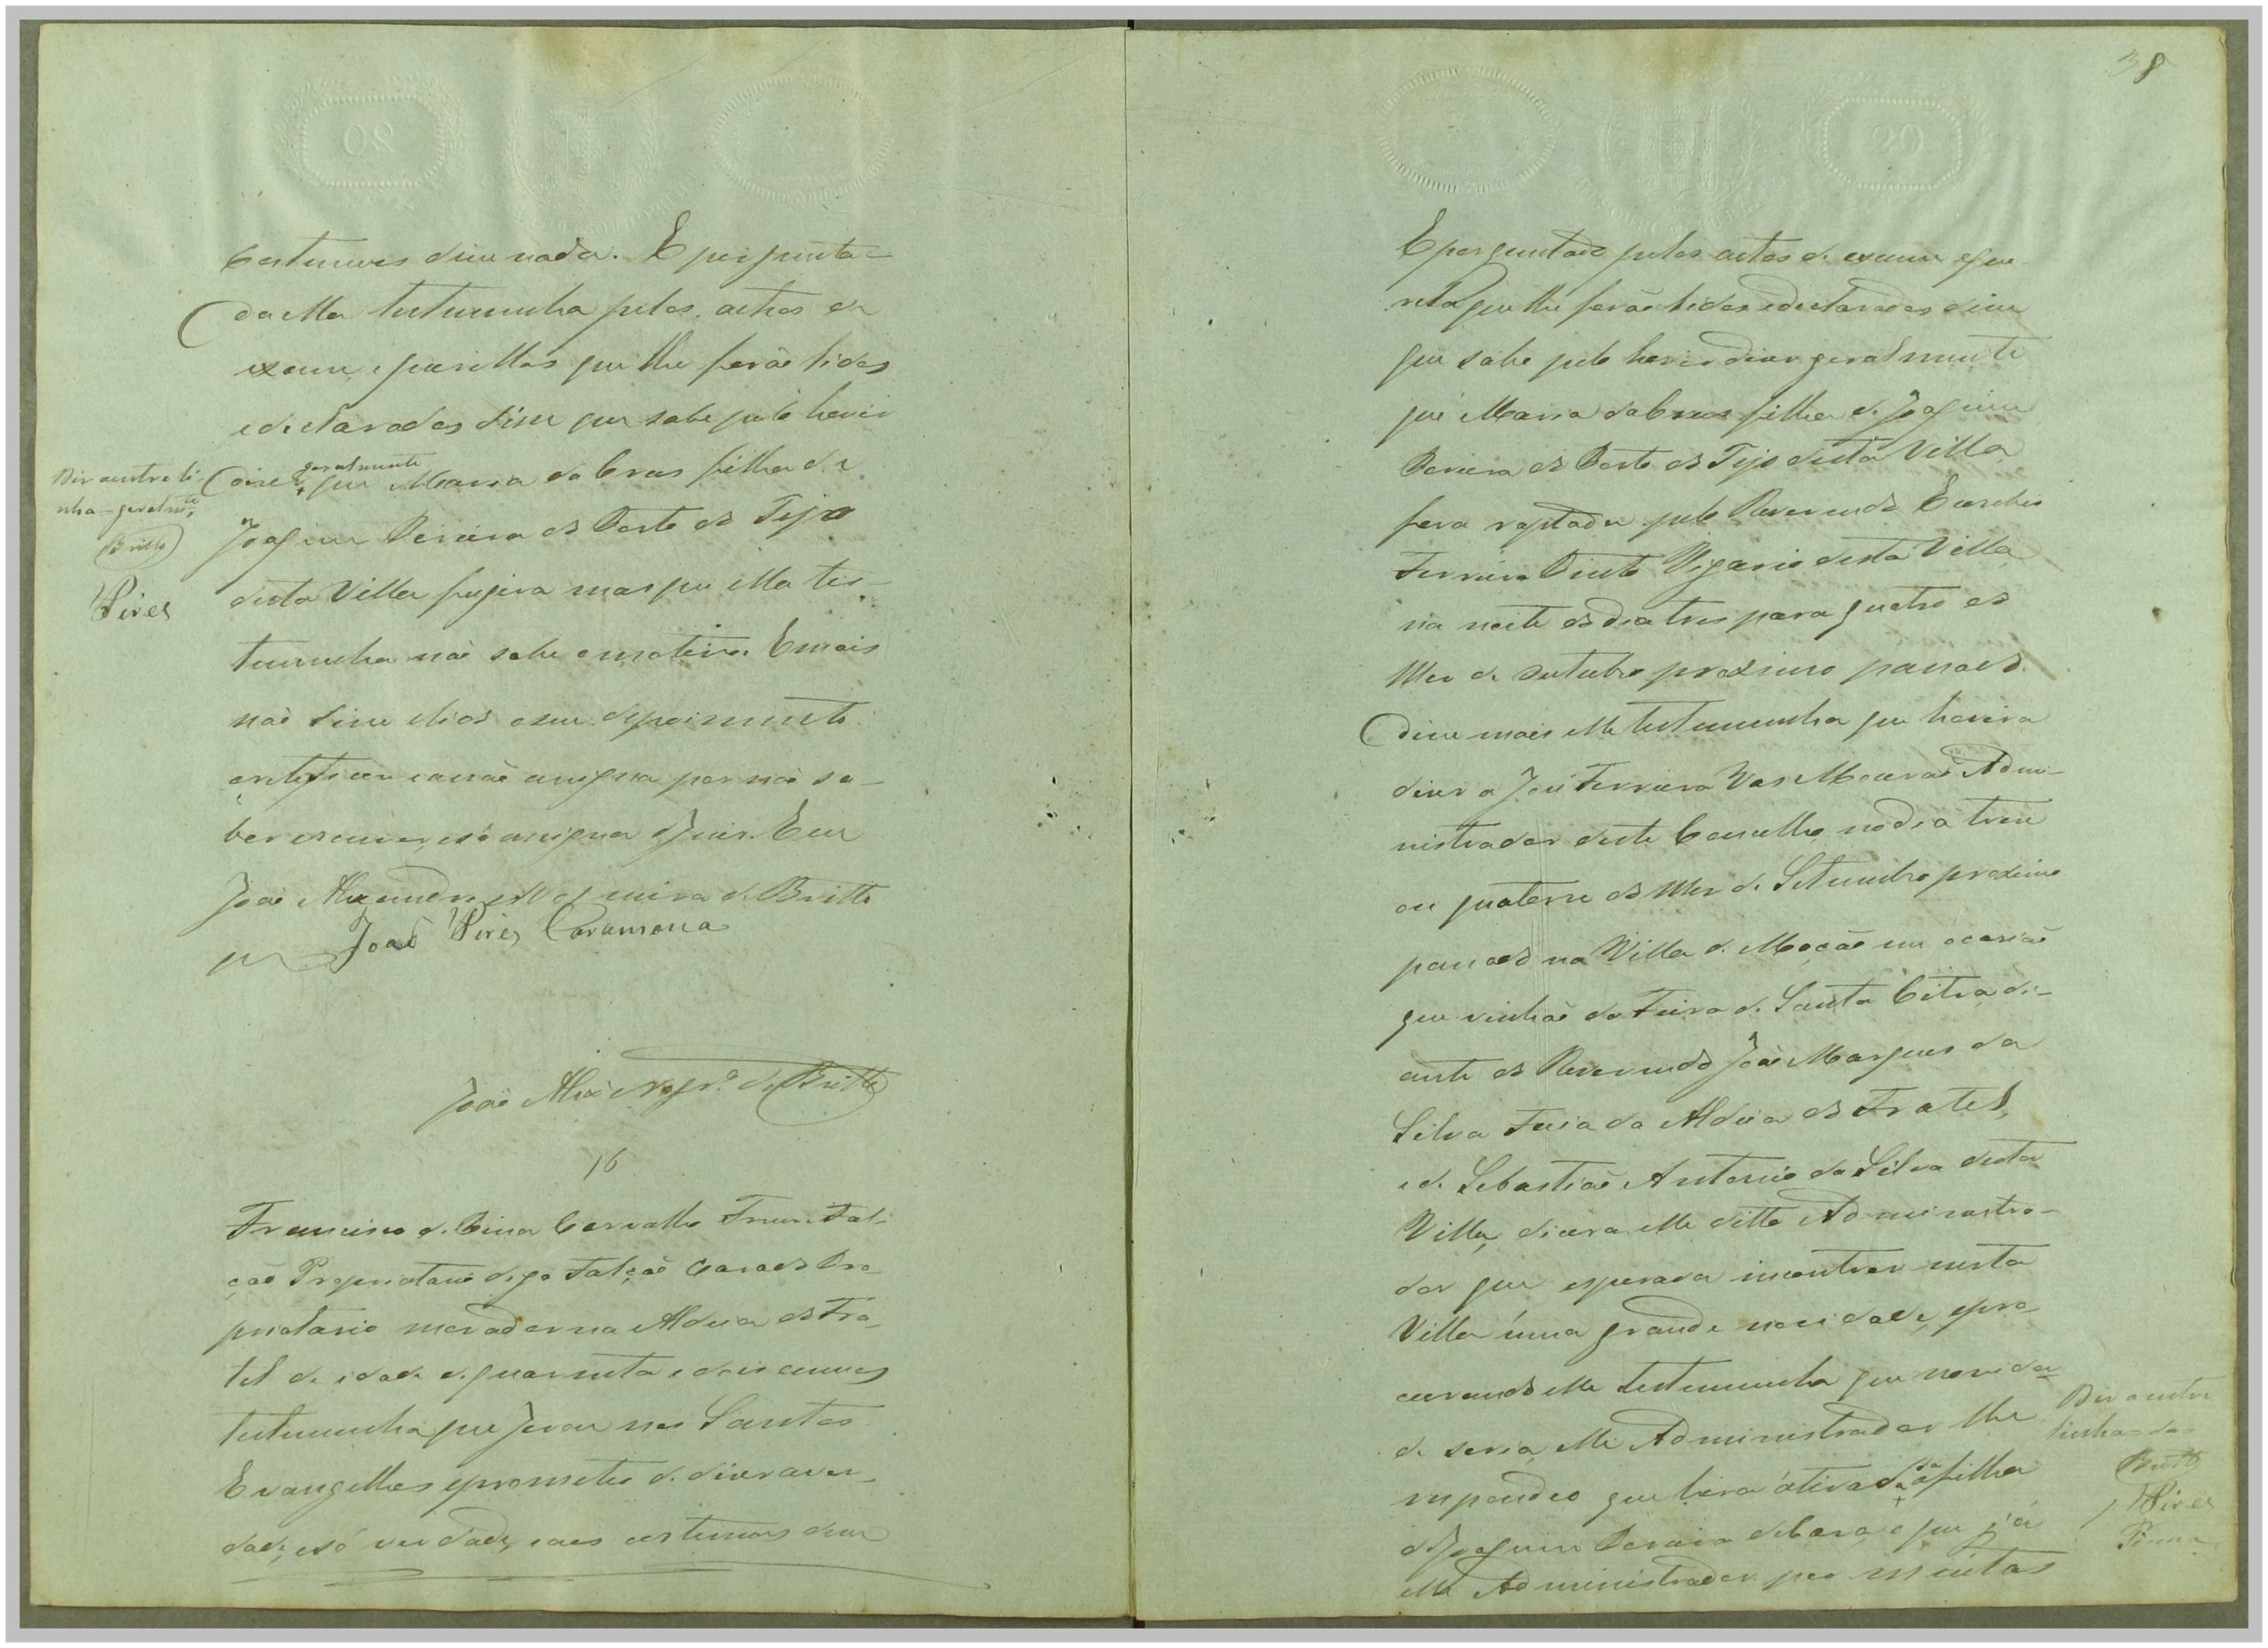 Costumes disse nada. E pergunta-
da ella testemunha pelos autos de
exame e querellas que lhe forão lidos
e declarados disse que sabe pelo houvir
dizer geralmente que Maria da Crus filha de
Joaquim Pereira do Porto do Tejo
desta Villa fugira mas que ella tes-
temunha não sabe o motivo. E mais
não disse e lido o seu depoimento
o retificou e não assigna por não sa-
ber escrever e só assigna o Juis. E eu
João Alexandre Nogueira de Britto
João Pires Caramona
João Alex.e Nogr.a de Britto
Diz a entreli-
nha = geralm.te
Britto
Pires
16
Francisco de Pina Carvalho Freire Fal-
cão Proprietario digo Falcão Casado Pro-
prietario morador na Aldeia do Fra-
tel de idade de quarenta e dois annos
testemunha que jurou nos Santos
Evangelhos e prometeu de dizer a ver-
dade, e só verdade, e aos costumes disse
38
E perguntado pelos autos de exame e que-
rela que lhe forão lidos e declarados disse
que sabe pelo houvir dizer geralmente
que Maria da Crus filha de Joaquim
Pereira do Porto do Tejo desta Villa
fora raptada pelo Reverendo Euzebio
Ferreira Pinto Vigario desta Villa
na noite do dia tres para quatro do
Mez de Outubro proximo passado.
disse mais elle testemunha que houvira
dizer a José Ferreira Vas Mourão Admi-
nistrador deste Concelho no dia treze
ou quatorze do Mez de Setembro proximo
passado na Villa de Mação em ocasião
que vinhão da Feira de Santa Citra di-
ante do Reverendo João Marques da
Silva Faia da Aldeia do Fratel,
e de Sebastião Antonio da Silva desta
Villa, dicera elle ditto Administra-
dor que esperava incontrar nesta
Villa úma grande novidade, e pro-
curando elle testemunha que novida-
de seria, elle Administrador lhe
respondeo que hera a tirada da filha
de Joaquim Pereira de Casa, e que já
elle Administrador por muitas
Diz a entre
linha = da
Britto
Pires
Penna